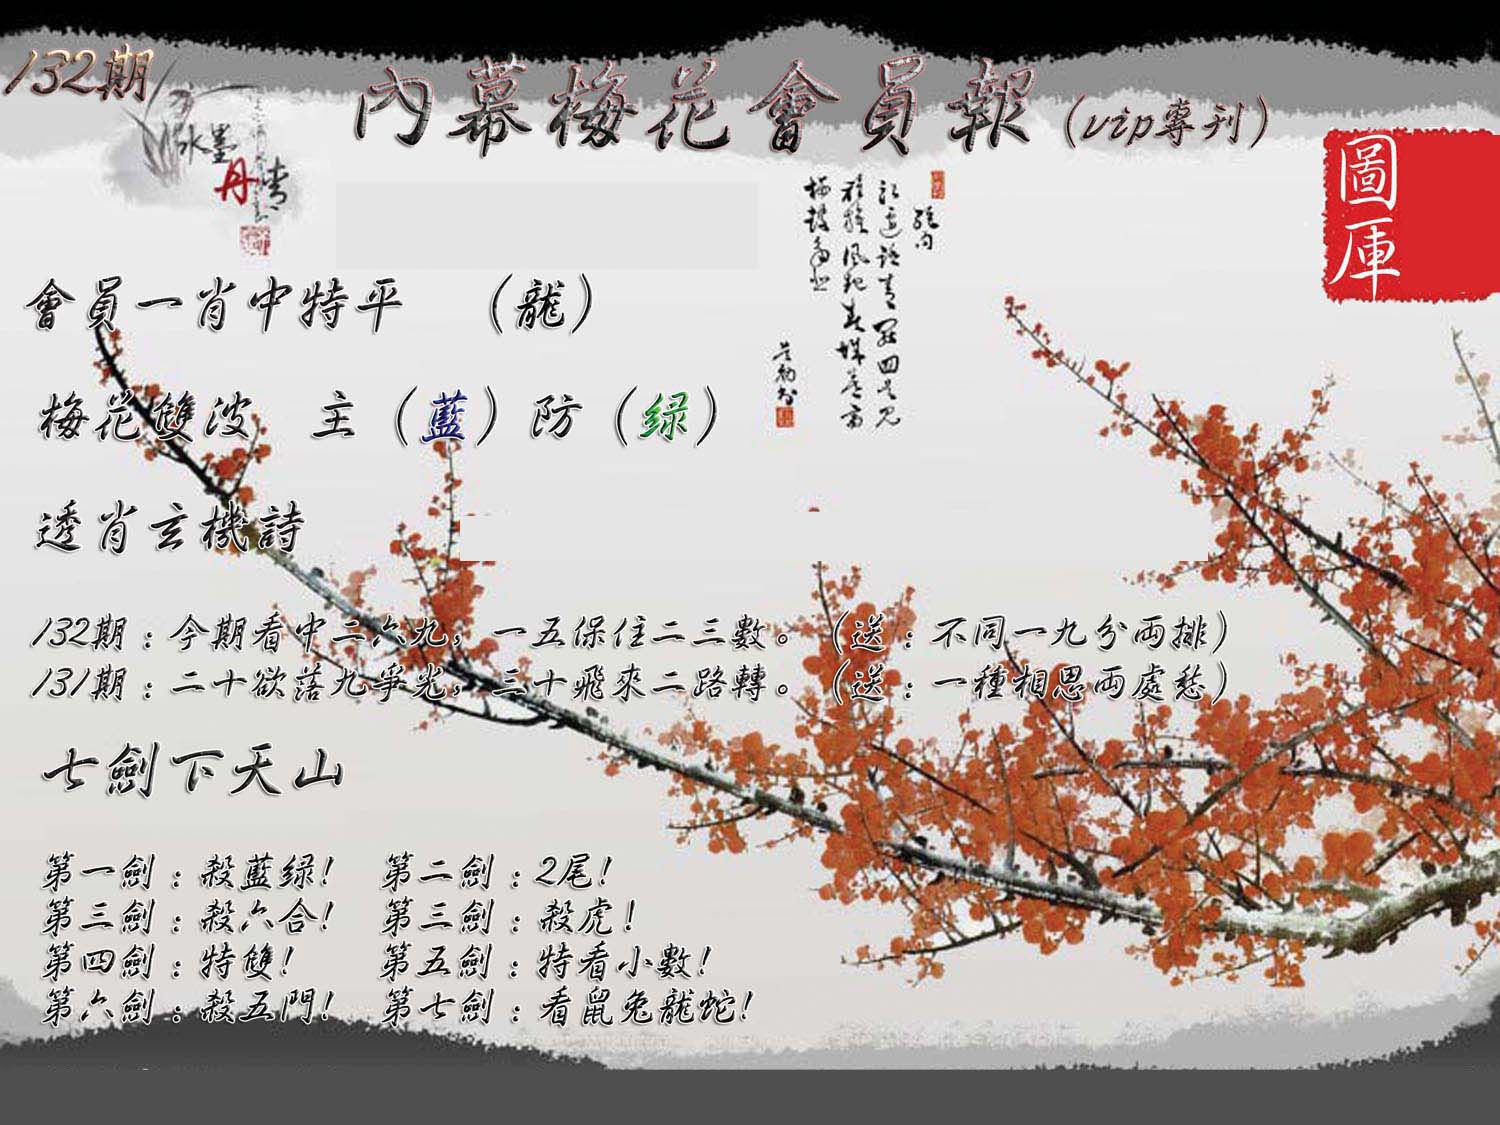 132期
內幕梅花會員報(vip專刊)
水墨
丹青
圖庫
會員一肖中特平 (龍)
梅花雙波 主(藍)防(绿)
透肖玄機詩
132期:今期看中二六九,一五保住二三數。(送:不同一九分両排)
131期:二十欲落九爭光,三十飛來二路轉。(送:一種相思両處愁)
七劍下天山
第一劍:殺藍绿! 第二劍:2尾!
第三劍:殺六合! 第三劍:殺虎!
第四劍:特雙! 第五劍:特看小數!
第六劍:殺五門! 第七劍:看鼠兔龍蛇!